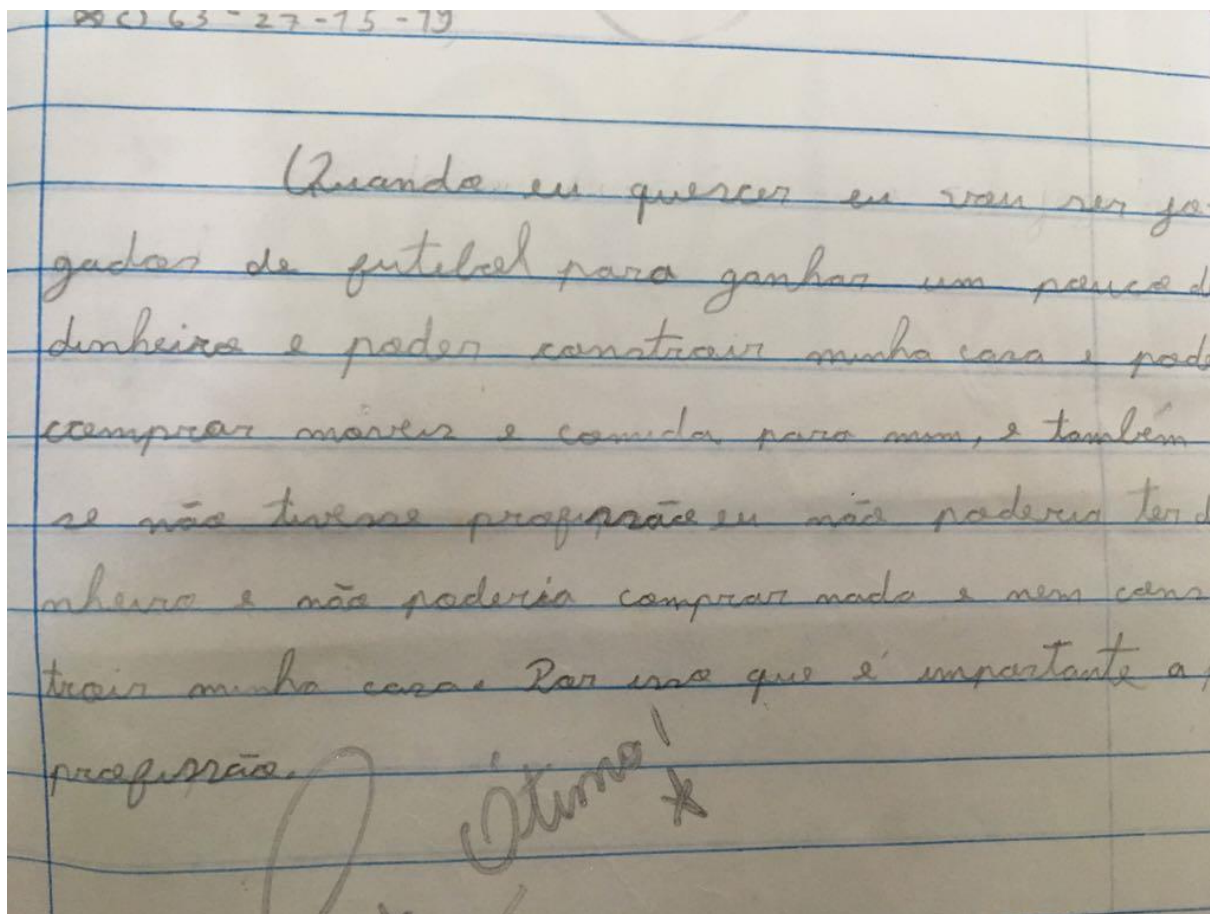 c) 63-27-15-19
Quando eu quercer eu vou ser jo-
gador de futebol para ganhar um pouco d
dinheiro e poder constroir minha casa e pode
comprar móveis e comida para mim, e também
se não tivesse profissão eu não poderia ter d
nheiro e não poderia comprar nada e nem cons
troir minha casa. Por isso que é importante a
profissão.
Ótimo!